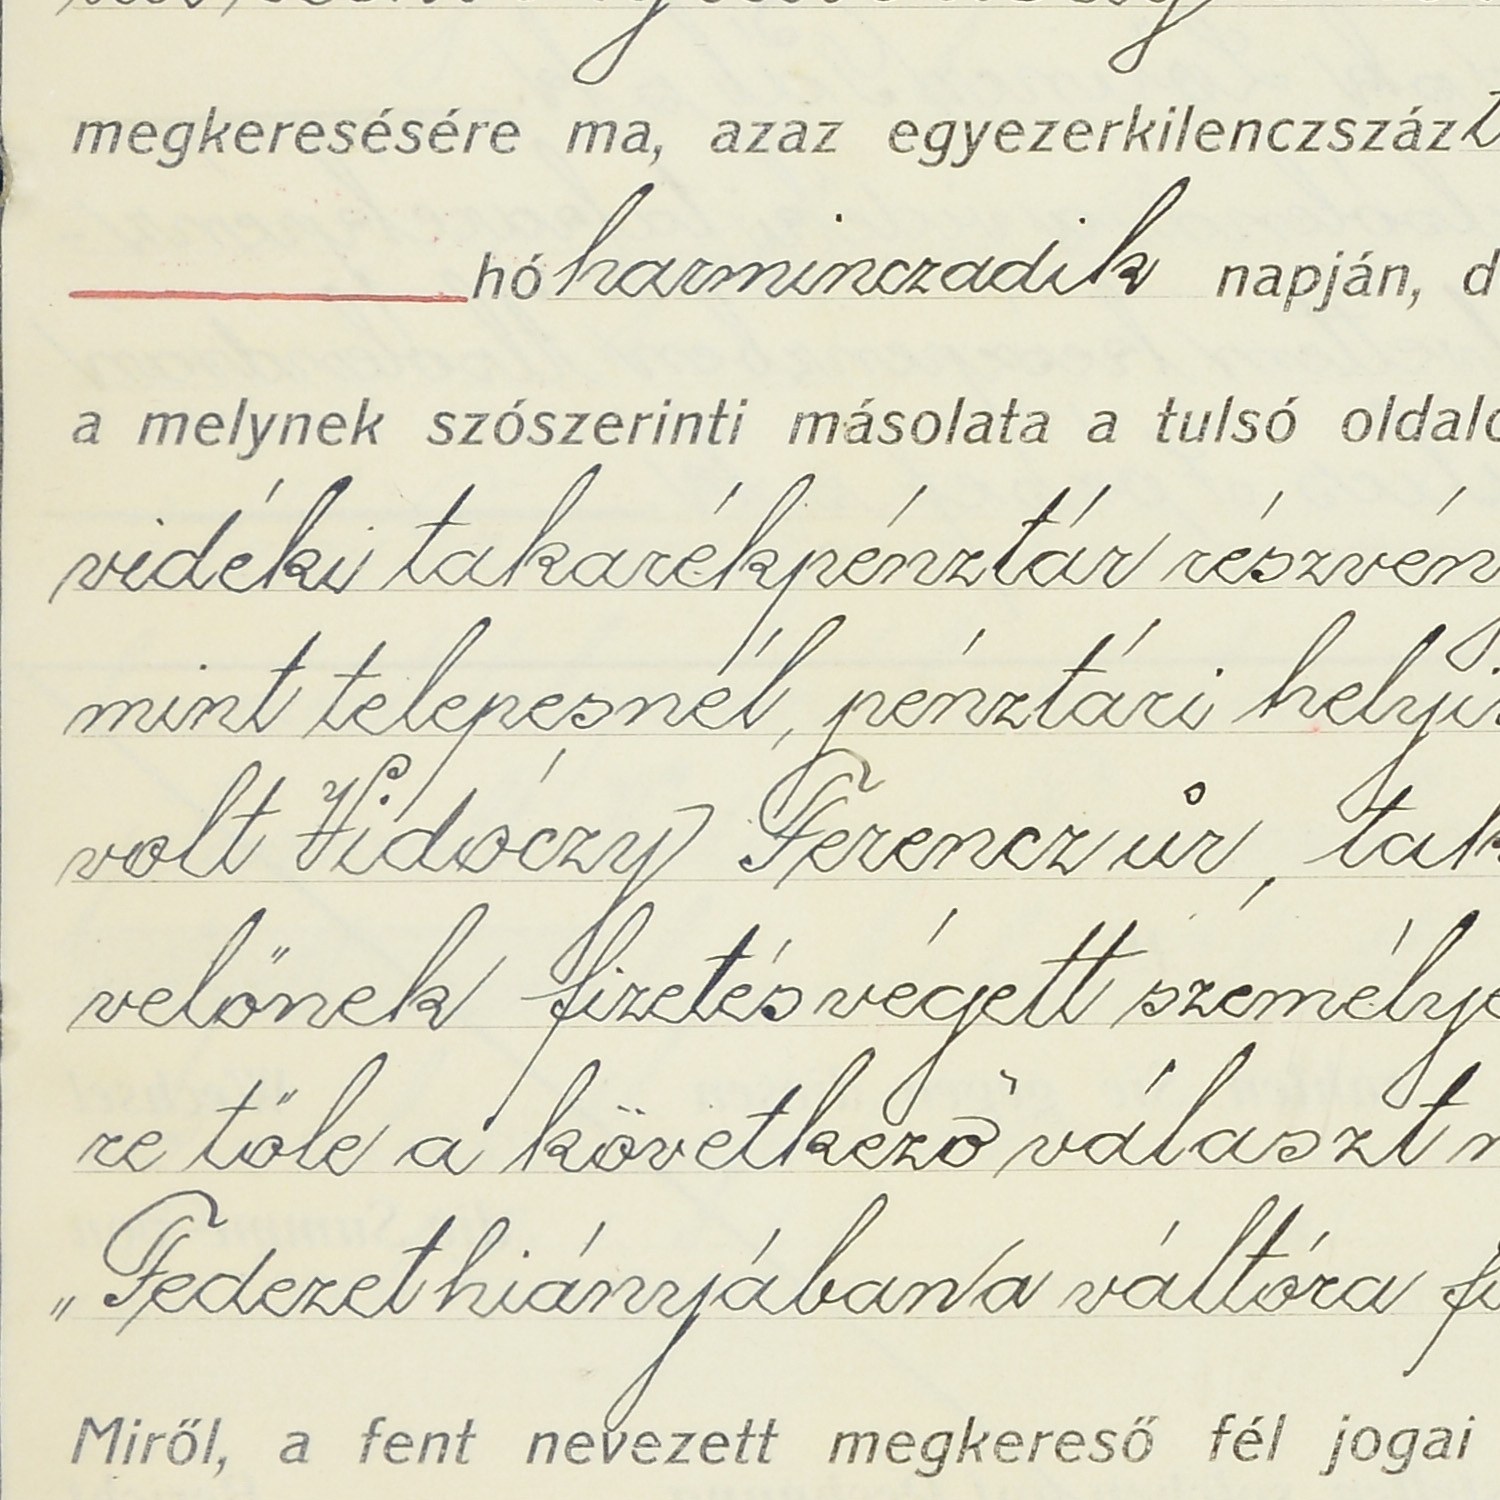 megkeresésére ma, azaz egyezerkilenczszáz
hó harminczadik napján, d
a melynek szószerinti másolata a tulsó oldalo
vidéki takarékpénztár részvén
mint telepesnél, pénztári helyi
volt Vidóczy Ferencz úr, tak
velőnek fizetés végett személye
re tőle a következő választ
„Fedezet hiányában a váltóra fi
Miről, a fent nevezett megkereső fél jogai